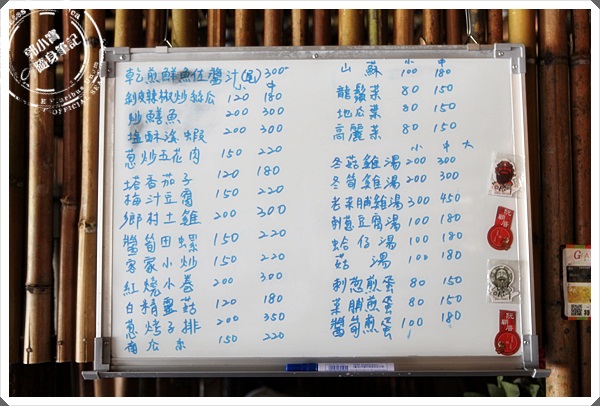 乾煎鮮魚佐醬汁(尾)300
小 中
剝皮辣椒炒絲瓜 120 180
炒鱔魚 200 300
塩酥溪蝦 200 300
蔥炒五花肉 150 220
塔香茄子 120 180
梅汁豆腐 150 220
鄉村土雞 200 300
醬筍田螺 150 220
客家小炒 150 220
紅燒小卷 200 300
白精靈菇 120 180
蔥烤子排 200 350
150 220
小 中
山蘇 100 180
龍鬚菜 80 150
地瓜菜 80 150
高麗菜 80 150
小 中 大
冬菇雞湯 200 300
冬筍雞湯 200 300
老菜脯雞湯 300 450
豆腐湯 100 180
蛤仔湯 100 180
菇湯 100 180
剌葱煎蛋 80 150
菜脯煎蛋 80 150
醬筍煎蛋 100 180